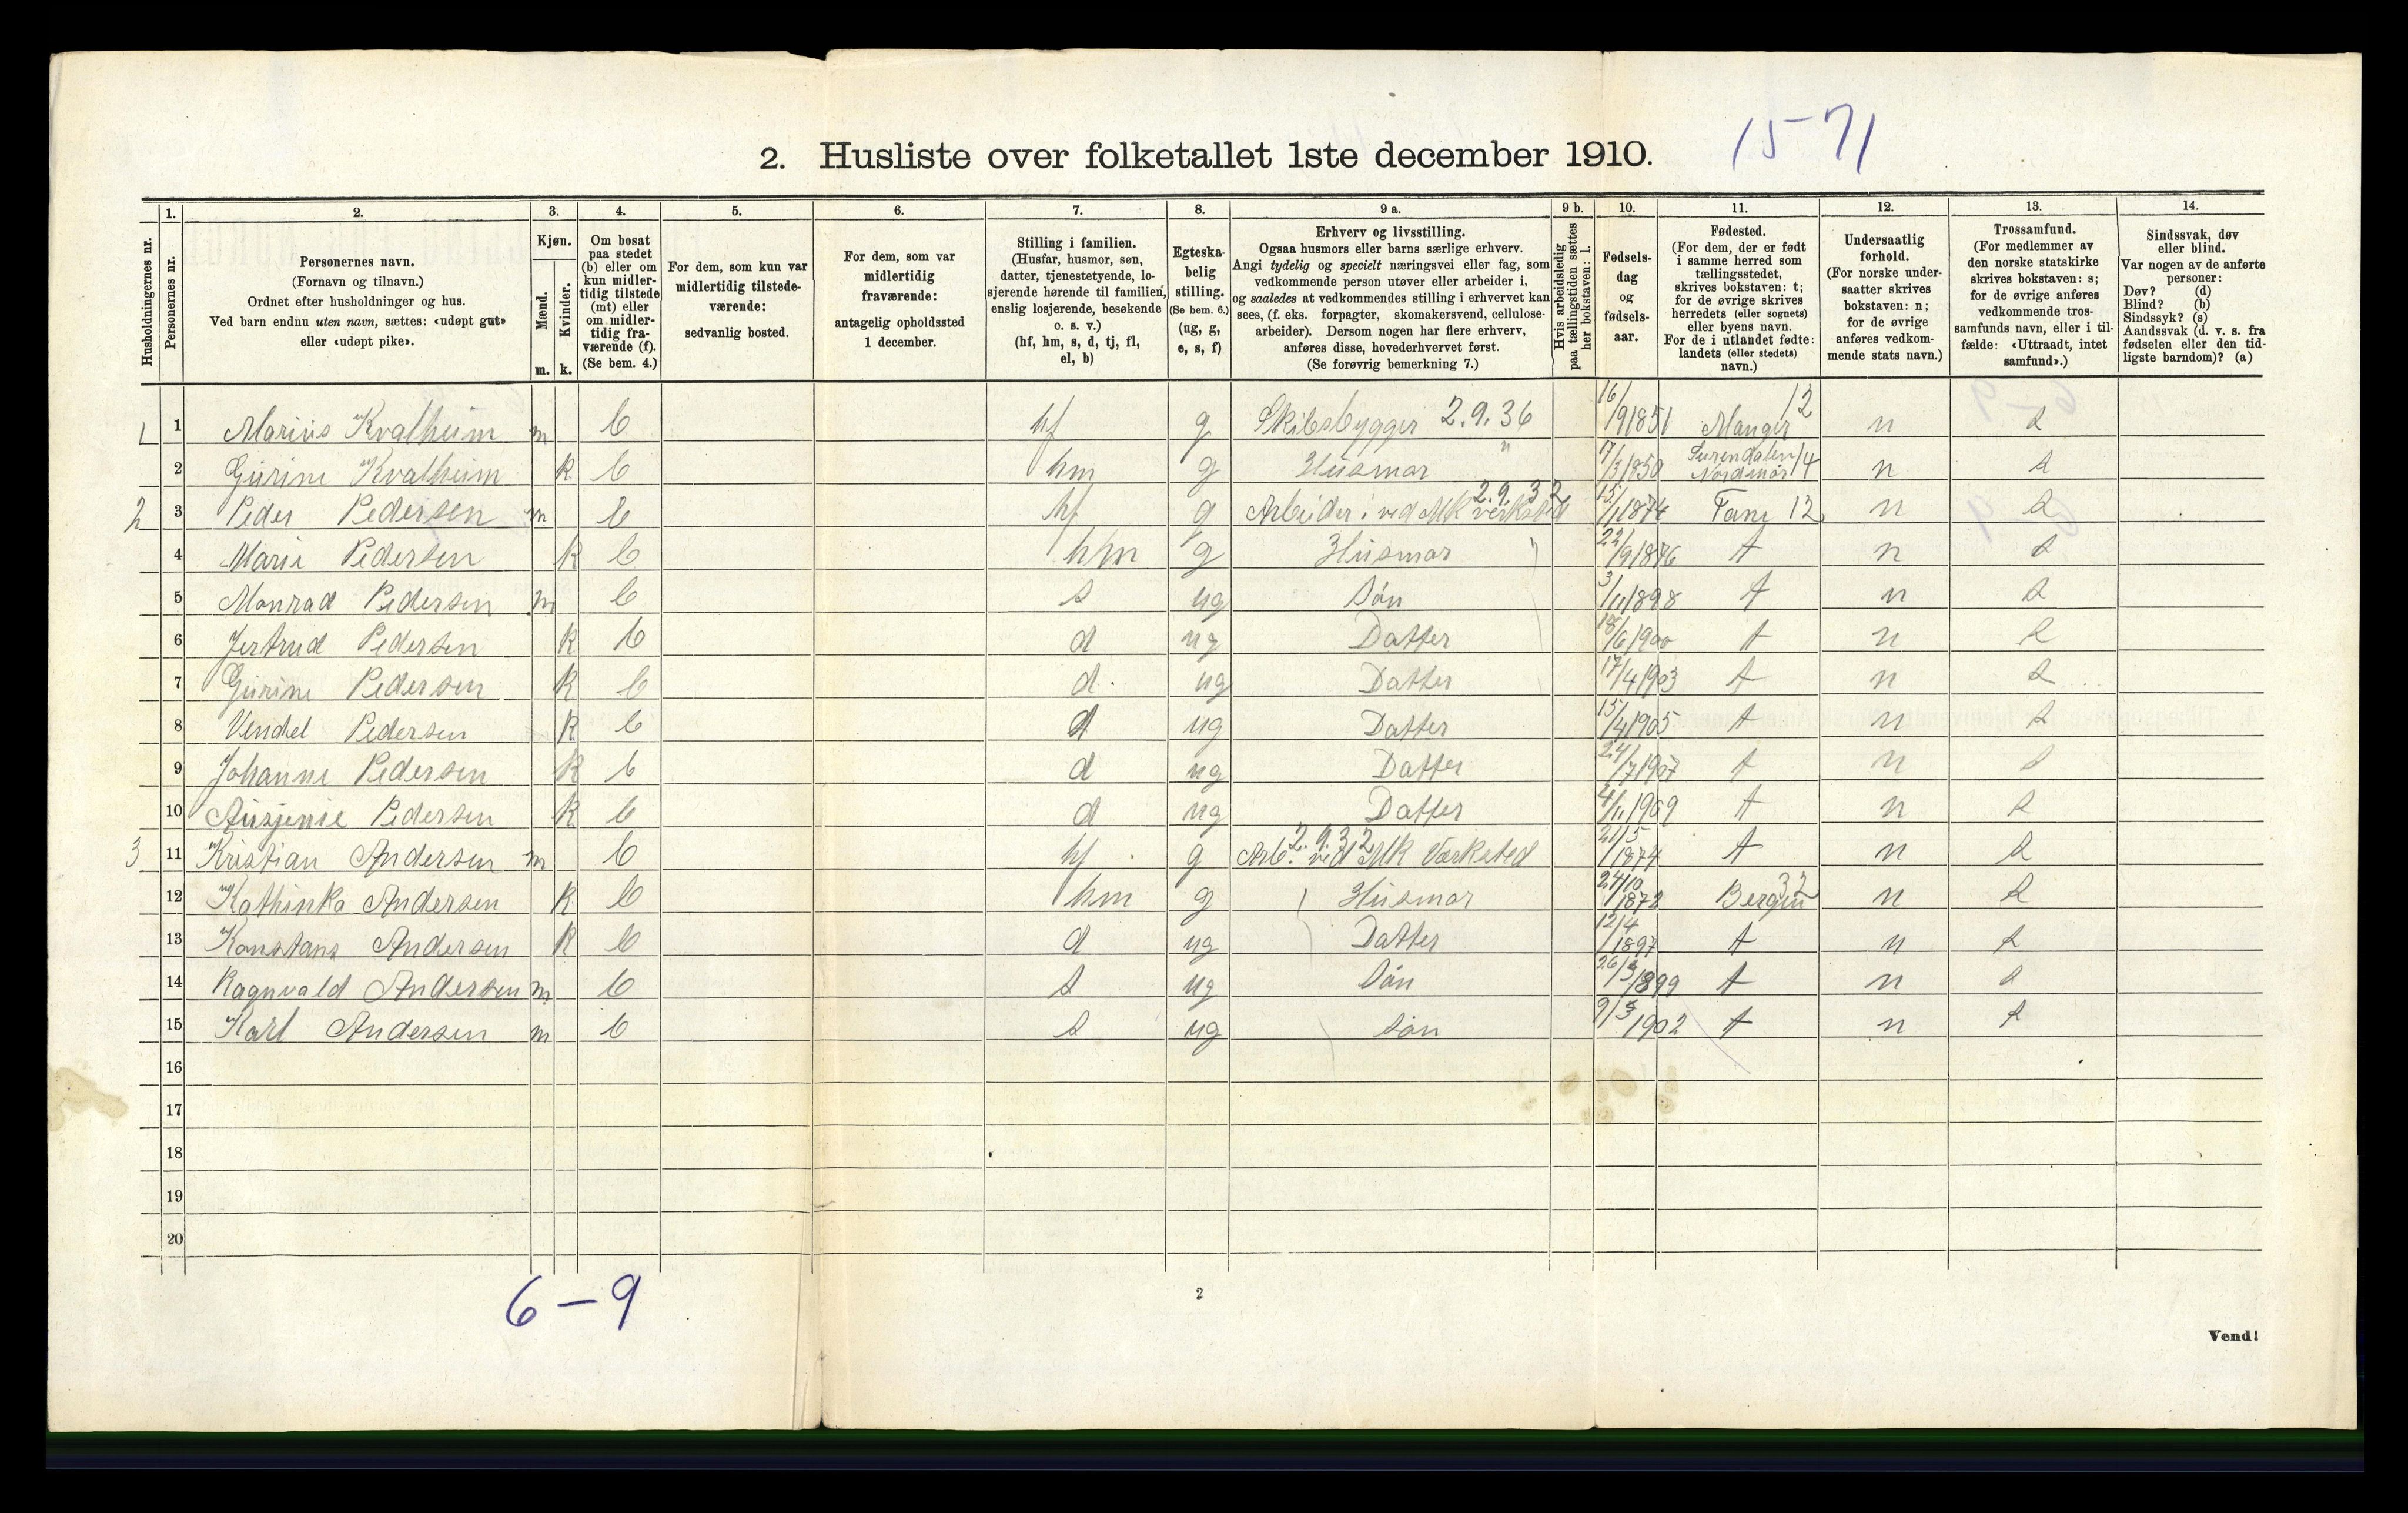 15-71
2. Husliste over folketallet 1ste december 1910.
Husholdningernes nr.
1. Personernes nr.
2. Personernes navn.
(Fornavn og tilnavn.)
Ordnet efter husholdninger og hus.
Ved barn endnu uten navn, sættes: «udøpt gut»
eller «udøpt pike».
3. Kjøn.
Mænd. m.
Kvinder. k.
4. Om bosat
paa stedet
(b) eller om
kun midler-
tidig tilstede
(mt) eller
om midler-
tidig fra-
værende (f).
(Se bem. 4.)
5. For dem, som kun var
midlertidig tilstede-
værende:
sedvanlig bosted.
6. For dem, som var
midlertidig
fraværende:
antagelig opholdssted
1 december.
7. Stilling i familien.
(Husfar, husmor, søn,
datter, tjenestetyende, lo-
sjerende hørende til familien,
enslig losjerende, besøkende
o. s. v.)
(hf, hm, s, d, tj, fl,
el, b)
8. Egteska-
belig
stilling.
(Se bem. 6.)
(ug, g,
e, s, f)
9 a. Erhverv og livsstilling.
Ogsaa husmors eller barns særlige erhverv.
Angi tydelig og specielt næringsvei eller fag, som
vedkommende person utøver eller arbeider i,
og saaledes at vedkommendes stilling i erhvervet kan
sees, (f. eks. forpagter, skomakersvend, cellulose-
arbeider). Dersom nogen har flere erhverv,
anføres disse, hovederhvervet først.
(Se forøvrig bemerkning 7.)
9 b. Hvis arbeidsledig
paa tællingstiden sættes
her bokstaven: l.
10. Fødsels-
dag
og
fødsels-
aar.
11. Fødested.
(For dem, der er født
i samme herred som
tællingsstedet,
skrives bokstaven: t;
for de øvrige skrives
herredets (eller sognets)
eller byens navn.
For de i utlandet fødte:
landets (eller stedets)
navn.)
12. Undersaatlig
forhold.
(For norske under-
saatter skrives
bokstaven: n;
for de øvrige
anføres vedkom-
mende stats navn.)
13. Trossamfund.
(For medlemmer av
den norske statskirke
skrives bokstaven: s;
for de øvrige anføres
vedkommende tros-
samfunds navn, eller i til-
fælde: «Uttraadt, intet
samfund».)
14. Sindssvak, døv
eller blind.
Var nogen av de anførte
personer:
Døv? (d)
Blind? (b)
Sindssyk? (s)
Aandssvak (d. v. s. fra
fødselen eller den tid-
ligste barndom)? (a)
1 1 Marius Kvalheim m b hf g Skibsbygger 2.9.36 16/9 1851 Manger 12 n s
2 Gurine Kvalheim k b hm g Husmor " 17/3 1850 Surendalen Nordmør 14 n s
2 3 Peder Pedersen m b hf g Arbeider i ved MK verksted 2.9.32 15/1 1874 Fane 12 n s
4 Marie Pedersen k b hm g Husmor " 22/9 1876 t n s
5 Monrad Pedersen m b s ug Søn 3/11 1898 t n s
6 Jertrud Pedersen k b d ug Datter 18/6 1900 t n s
7 Gurine Pedersen k b d ug Datter 17/4 1903 t n s
8 Vendel Pedersen k b d ug Datter 15/4 1905 t n s
9 Johanne Pedersen k b d ug Datter 24/7 1907 t n s
10 Pedersen k b d ug Datter 4/11 1909 t n s
3 11 Kristian Andersen m b hf g Arb. ved MK Værksted 2.9.32 21/5 1874 t n s
12 Kathinka Andersen k b hm g Husmor 24/10 1872 Bergen 32 n s
13 Konstans Andersen k b d ug Datter 12/4 1897 t n s
14 Ragnvald Andersen m b s ug Søn 26/ 1899 t n s
15 Karl Andersen m b s ug Søn 9/3 1902 t n s
16
17
18
19
20
6-9
2
Vend!